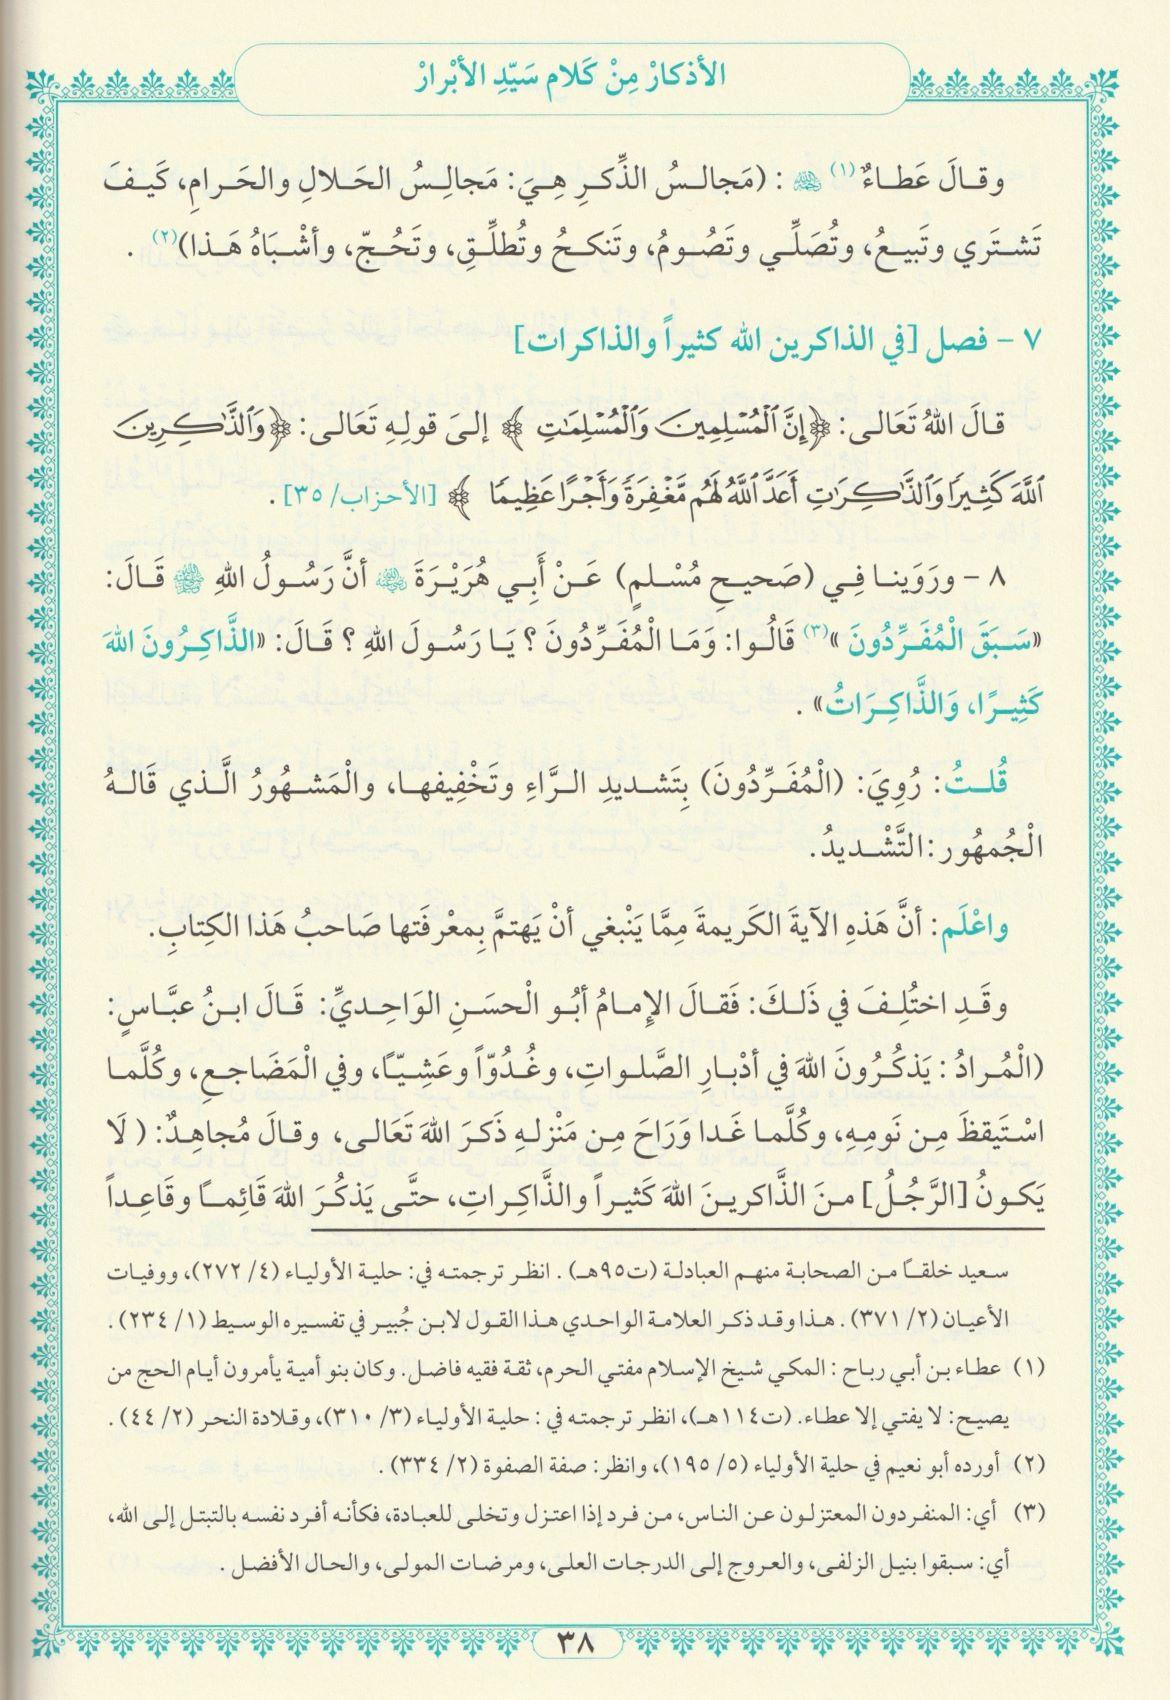 الأذكارْ مِنْ كَلام سَيّدِ الأبْرارْ
وقالَ عَطاءٌ(١) ﷫ : (مَجالسُ الذِّكرِ هِيَ: مَجالِسُ الحَلالِ والحَرامِ، كَيفَ
تَشتَري وتَبيعُ، وتُصَلِّي وتَصُومُ، وتَنكحُ وتُطلِّقِ، وتَحُجّ، وأشْبَاهُ هَذا)(٢) .
٧ - فصل [في الذاكرين الله كثيراً والذاكرات]
قالَ اللهُ تَعَالى: ﴿إِنَّ ٱلْمُسْلِمِينَ وَٱلْمُسْلِمَٰتِ ﴾ إلىَ قولِهِ تَعَالى: ﴿وَٱلذَّٰكِرِينَ
ٱللَّهَ كَثِيرًا وَٱلذَّٰكِرَٰتِ أَعَدَّ ٱللَّهُ لَهُم مَّغْفِرَةً وَأَجْرًا عَظِيمًا ﴾ [الأحزاب/ ٣٥] .
٨ - ورَوَينا فِي (صَحيحِ مُسْلمٍ) عَنْ أَبِي هُرَيْرَةَ ﷜ أنَّ رَسُولُ اللهِ ﷺ قَالَ:
«سَبَقَ الْمُفَرِّدُونَ »(٣) قَالُوا: وَمَا الْمُفَرِّدُونَ ؟ يَا رَسُولَ اللهِ ؟ قَالَ: «الذَّاكِرُونَ اللهَ
كَثِيرًا، وَالذَّاكِرَاتُ» .
قُلتُ: رُوِيَ: (الْمُفَرِّدُونَ) بِتَشديدِ الرَّاءِ وتَخْفِيفها، والْمَشهُورُ الَّذي قَالهُ
الْجُمهُور: التَّشْديدُ.
واعْلَم: أنَّ هَذهِ الآيةَ الكَريمةَ مِمَّا يَنْبغي أنْ يَهتمَّ بِمعْرفَتها صَاحبُ هَذا الكِتابِ.
وقَدِ اختُلِفَ في ذَلكَ: فَقالَ الإمامُ أبُو الْحسَنِ الوَاحِديِّ: قَالَ ابنُ عبَّاسٍ:
(الْمُرادُ : يَذكُرُونَ اللهَ في أدْبارِ الصَّلواتِ، وغُدُوّاً وعَشِيّاً، وفي الْمَضَاجعِ، وكُلَّما
اسْتَيقظَ مِن نَومِهِ، وكُلَّما غَدا وَرَاحَ مِن مَنْزلهِ ذَكرَ اللهَ تَعَالى، وقالَ مُجاهِدٌ: ( لَا
يَكونُ [الرَّجُلُ] منَ الذَّاكرينَ اللهَ كَثيراً والذَّاكِراتِ، حتَّى يَذكُرَ اللهَ قَائِمـاً وقَاعِداً
سعيد خلقاً من الصحابة منهم العبادلة (ت٩٥هـ) . انظر ترجمته في: حلية الأولياء (٤/ ٢٧٢)، ووفيات
الأعيان (٢/ ٣٧١) . هذا وقد ذكر العلامة الواحدي هذا القول لابن جُبير في تفسيره الوسيط (١/ ٢٣٤) .
(١) عطاء بن أبي رباح : المكي شيخ الإسلام مفتي الحرم، ثقة فقيه فاضل. وكان بنو أمية يأمرون أيام الحج من
يصيح: لا يفتي إلا عطاء. (ت١١٤هـ)، انظر ترجمته في : حلية الأولياء (٣/ ٣١٠)، وقلادة النحر (٢/ ٤٤) .
(٢) أورده أبو نعيم في حلية الأولياء (٥/ ١٩٥)، وانظر: صفة الصفوة (٢/ ٣٣٤) .
(٣) أي: المنفردون المعتزلون عن الناس، من فرد إذا اعتزل وتخلى للعبادة، فكأنه أفرد نفسه بالتبتل إلى الله،
أي: سبقوا بنيل الزلفى، والعروج إلى الدرجات العلى، ومرضات المولى، والحال الأفضل .
٣٨